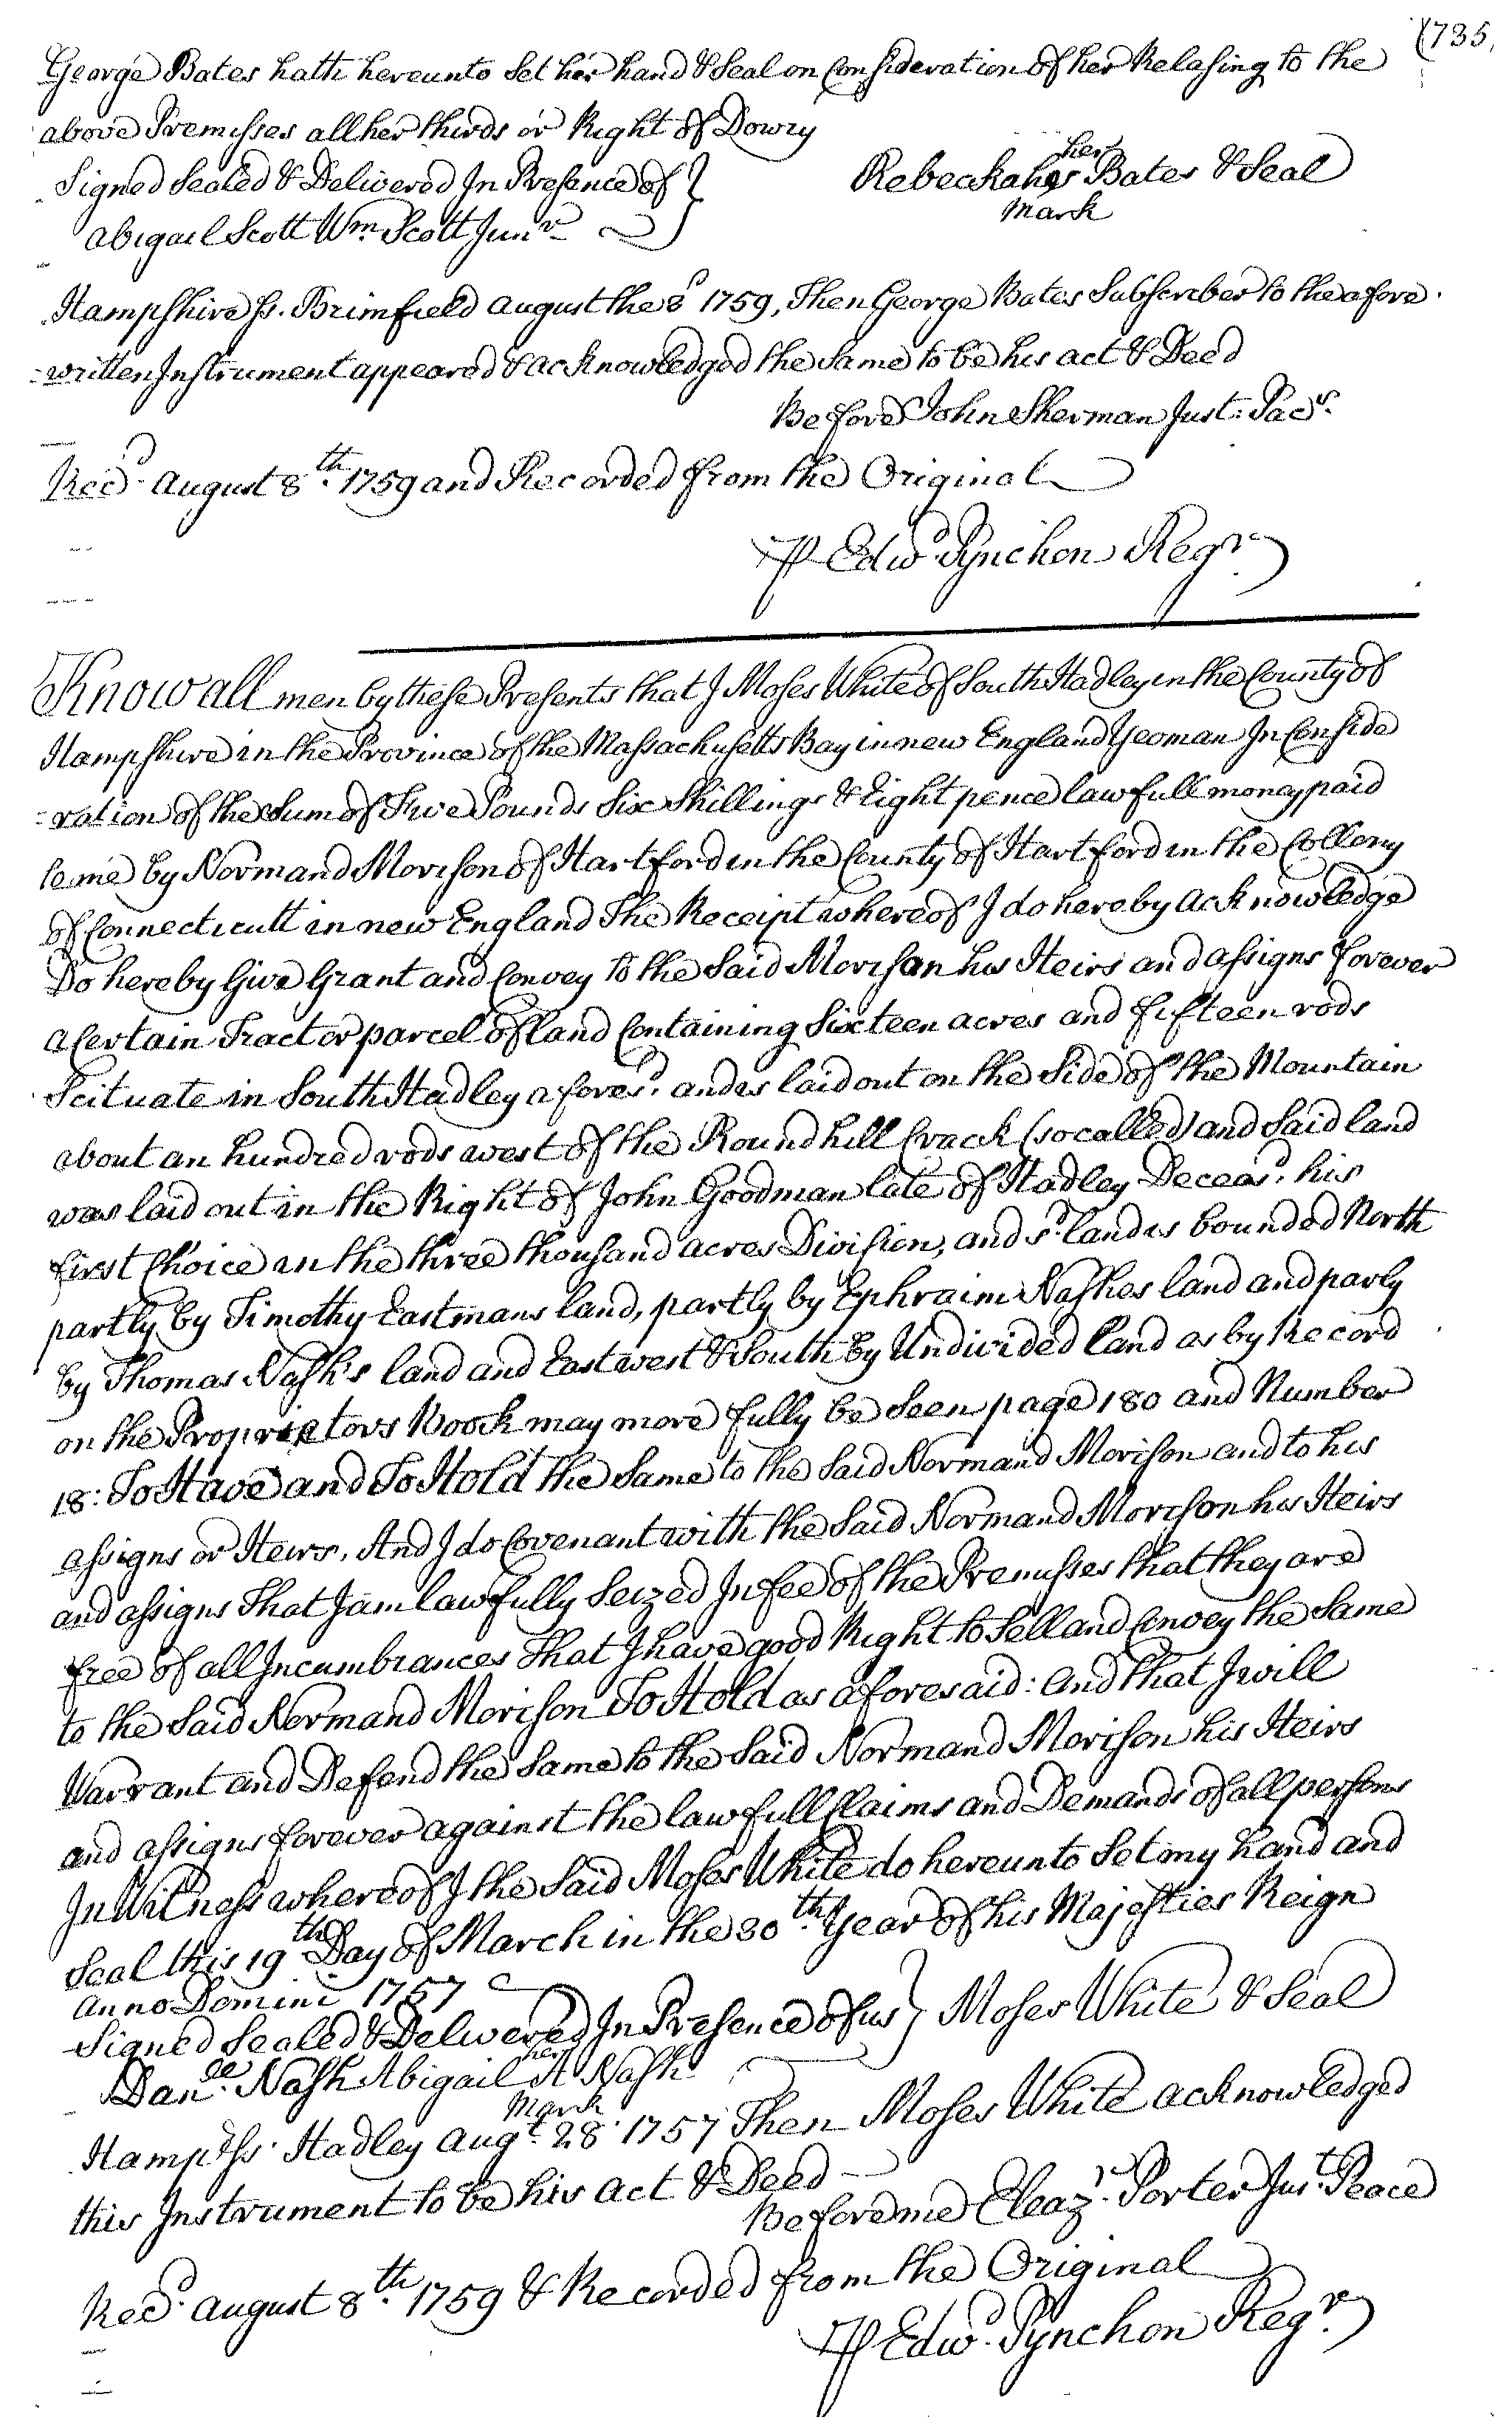 (735,
George Bates hath hereunto Set her hand & Seal on Consideration of her Relasing to the
above Premisses all her thirds or Right of Dowry
Signed Sealed & Delivered In Presence of }
Rebeckah her Bates & Seal
mark
Abigail Scott Wm. Scott Junr
Hampshire ss. Brimfield August the 8 1759, Then George Bates Subscriber to the afore
written Instrument appeared & acknowledged the Same to be his act & Deed
Before John Sherman Just: Pacs.
Recd. August 8th. 1759 and Recorded from the Original
P Edwd Pynchon Regr.
Know all men by these Presents that I Moses White of South Hadley in the County of
Hampshire in the Province of the Massachusetts Bay in new England Yeoman In Conside
=ration of the Sum of Five Pounds Six Shillings & Eight pence lawfull money paid
to me by Normand Morison of Hartford in the County of Hartford in the Collony
of Connecticutt in new England The Receipt whereof I do hereby acknowledge
Do hereby Give Grant and Convey to the Said Morison his Heirs and assigns forever
a Certain Tract or parcel of land Containing Sixteen acres and fifteen rods
Scituate in South Hadley aforesd. and is laid out on the Side of the Mountain
about an hundred rods west of the Round hill Crack (so called) and Said land
was laid out in the Right of John Goodman late of Hadley Deceasd. his
first Choice in the three thousand acres Division, and sd. land is bounded North
partly by Timothy Eastmans land, partly by Ephraim Nashes land and partly
by Thomas Nash's land and East west & South by Undivided land as by Record
on the Proprietors Boock may more fully be Seen page 180 and Number
18: To Have and To Hold the Same to the Said Normand Morison and to his
assigns or Heirs. And I do Covenant with the Said Normand Morison his Heirs
and assigns That I am lawfully Seized In fee of the Premisses that they are
free of all Incumbrances That I have good Right to Sell and Convey the Same
to the Said Normand Morison To Hold as aforesaid: and that I will
Warrant and Defend the Same to the Said Normand Morison his Heirs
and assigns forever against the lawfull Claims and Demands of all persons
In Witness whereof I the Said Moses White do hereunto Set my hand and
Seal this 19th Day of March in the 30th. Year of his Majesties Reign
anno Domini 1757
Signed Sealed & Delivered In Presence of us } Moses White & Seal
Danll. Nash Abigail her A Nash
mark
Hampss. Hadley Augt. 28. 1757 Then Moses White acknowledged
this Instrument to be his act & Deed
Before me Eleazr. Porter Just. Peace
Recd. August 8th. 1759 & Recorded from the Original
P Edwd. Pynchon Regr.